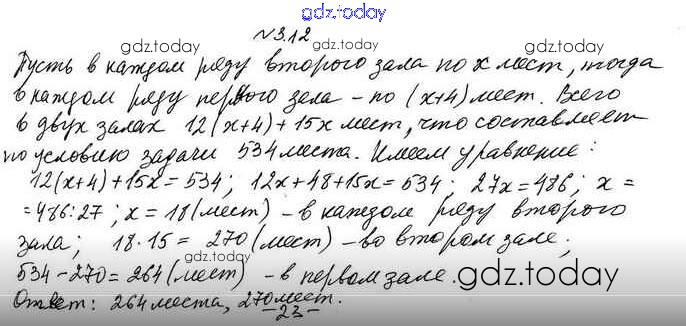 gdz.today
№3.12
gdz.today gdz.today
Пусть в каждом ряду второго зала по x мест, тогда
в каждом ряду первого зала – по (x+4) мест. Всего
gdz.today gdz.today
в двух залах 12(x+4)+15x мест, что составляет
по условию задачи 534 места. Имеем уравнение:
12(x+4)+15x=534; 12x+48+15x=534; 27x=486; x=
=486:27; x=18 (мест) – в каждом ряду второго
gdz.today gdz.today
зала; 18·15=270 (мест) – во втором зале;
534-270=264 (мест) – в первом зале.
gdz.today
Ответ: 264 места, 270 мест.
-23-